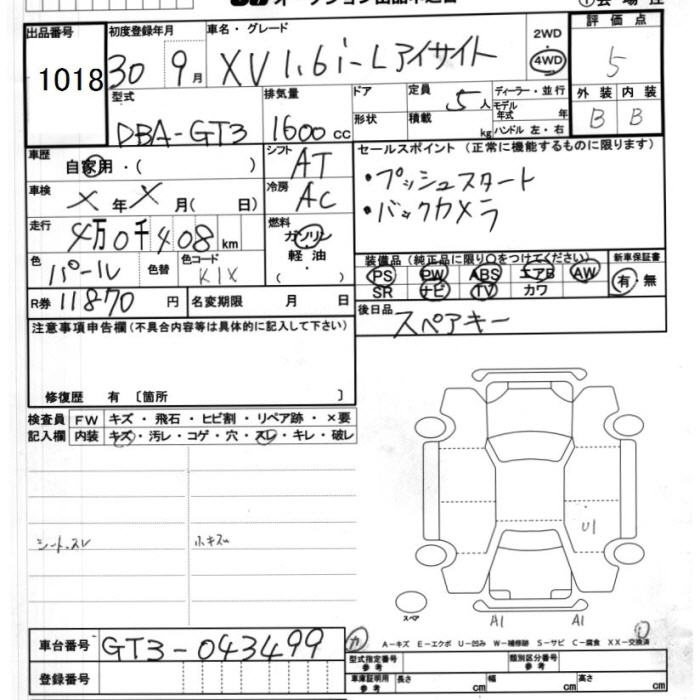 出品番号
1018
初度登録年月
30 9月
車名・グレード
XV 1.6i-Lアイサイト
2WD
4WD
評価点
5
外装 内装
B B
型式
DBA-GT3
排気量
1600cc
ドア
形状
定員
5人
積載
kg
ディーラー・並行
モデル年式 年
ハンドル 左・右
車歴
自家用・( )
シフト
AT
セールスポイント (正常に機能するものに限ります)
・プッシュスタート
・バックカメラ
車検
X年X月( 日)
冷房
AC
走行
4万0千408km
燃料
ガソリン
軽油
( )
色
パール
色替
色コード
K1X
装備品 (純正品に限り○をつけてください)
PS PW ABS エアB AW
SR ナビ TV カワ
新車保証書
有・無
R券 11870円
名変期限 月 日
後日品
スペアキー
注意事項申告欄 (不具合内容等は具体的に記入して下さい)
修復歴 有 〔箇所 〕
検査員記入欄
FW キズ・飛石・ヒビ割・リペア跡・×要
内装 キズ・汚レ・コゲ・穴・スレ・キレ・破レ
シートスレ
小キズ
U1
スペア
A1 A1
A-キズ E-エクボ U-凹み W-補修跡 S-サビ C-腐食 XX-交換済
車台番号
GT3-043499
登録番号
型式指定番号 参考
類別区分番号 参考
車庫証明用 参考
長さ cm 幅 cm 高さ cm